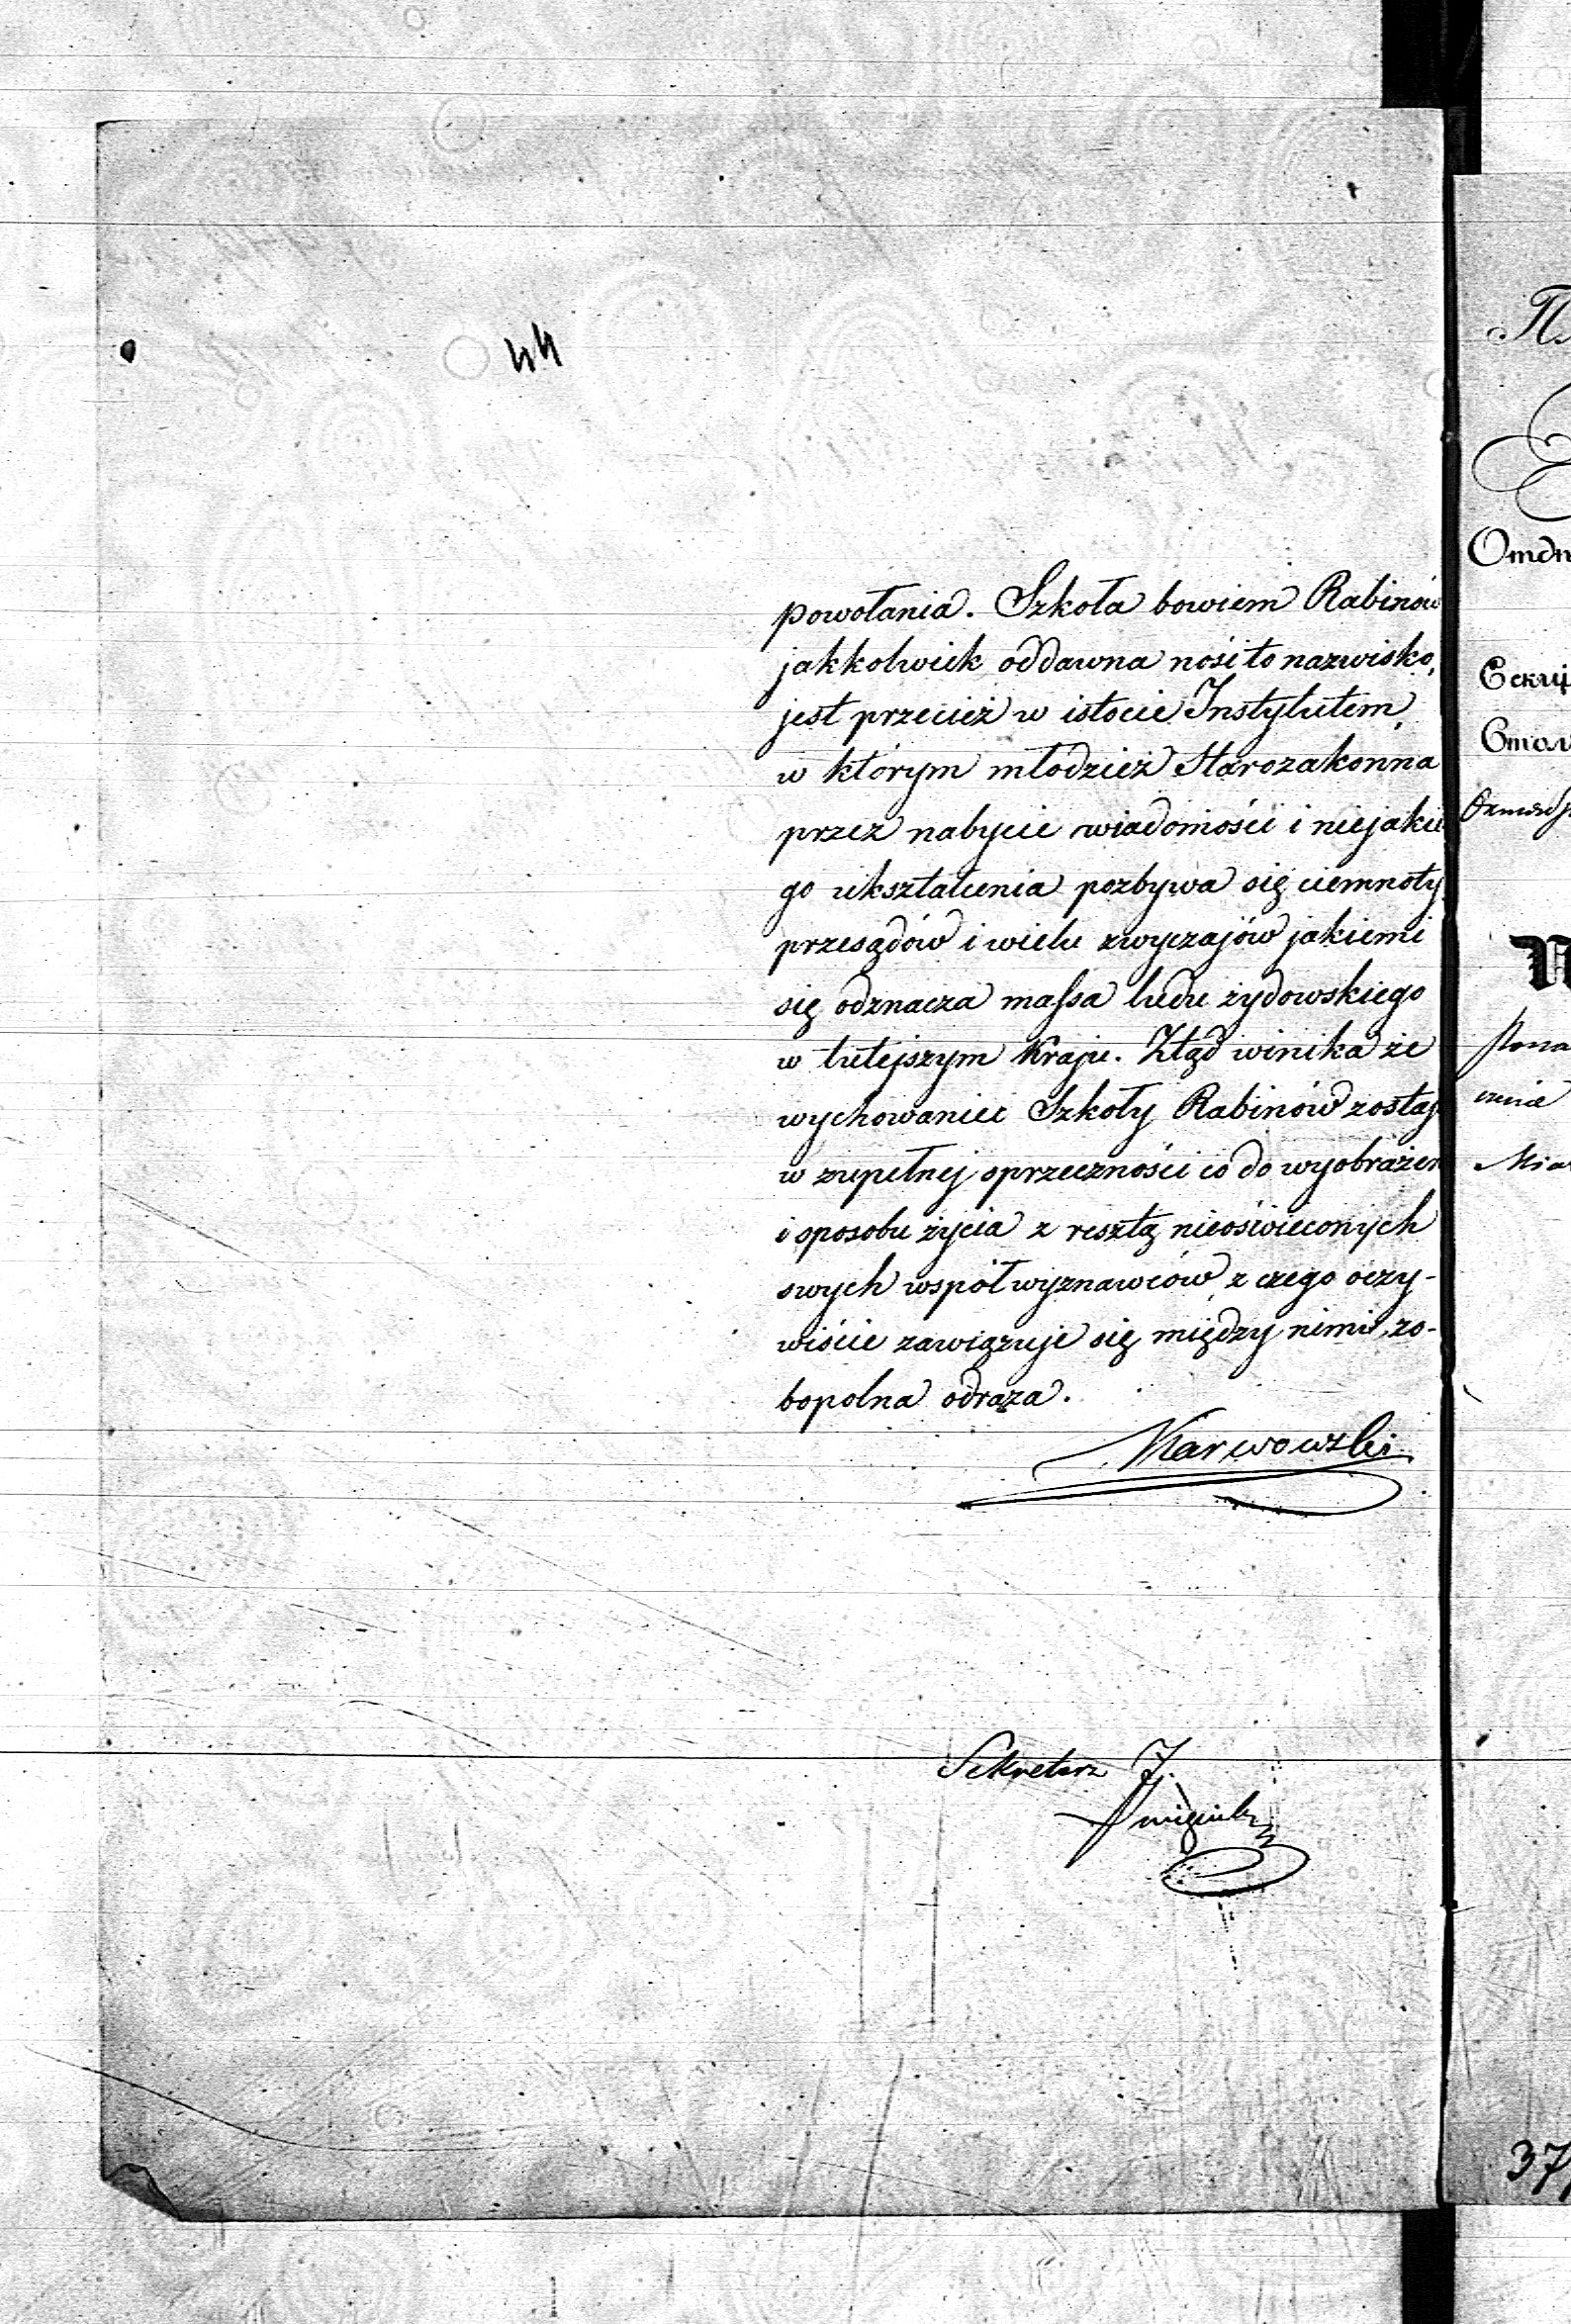 44
powołania. Szkoła bowiem Rabinów
jakkolwiek oddawna nosi to nazwisko,
jest przecież w istocie Instytutem,
w którym młodzież Starozakonna
przez nabycie wiadomości i niejakie
go ukształcenia pozbywa się ciemnoty,
przesądów i wielu zwyczajów jakiemi
się odznacza massa ludu żydowskiego
w tutejszym Kraju. Ztąd winika że
wychowaniec Szkoły Rabinów zostaje
w zupełnej sprzeczności co do wyobrażen
i sposobu życia z resztą nieoświeconych
swych współwyznawców, z czego oczy-
wiście zawiązuje się między nimi, zo-
bopolna odraza.
Karwowski
Sekretarz J.
37